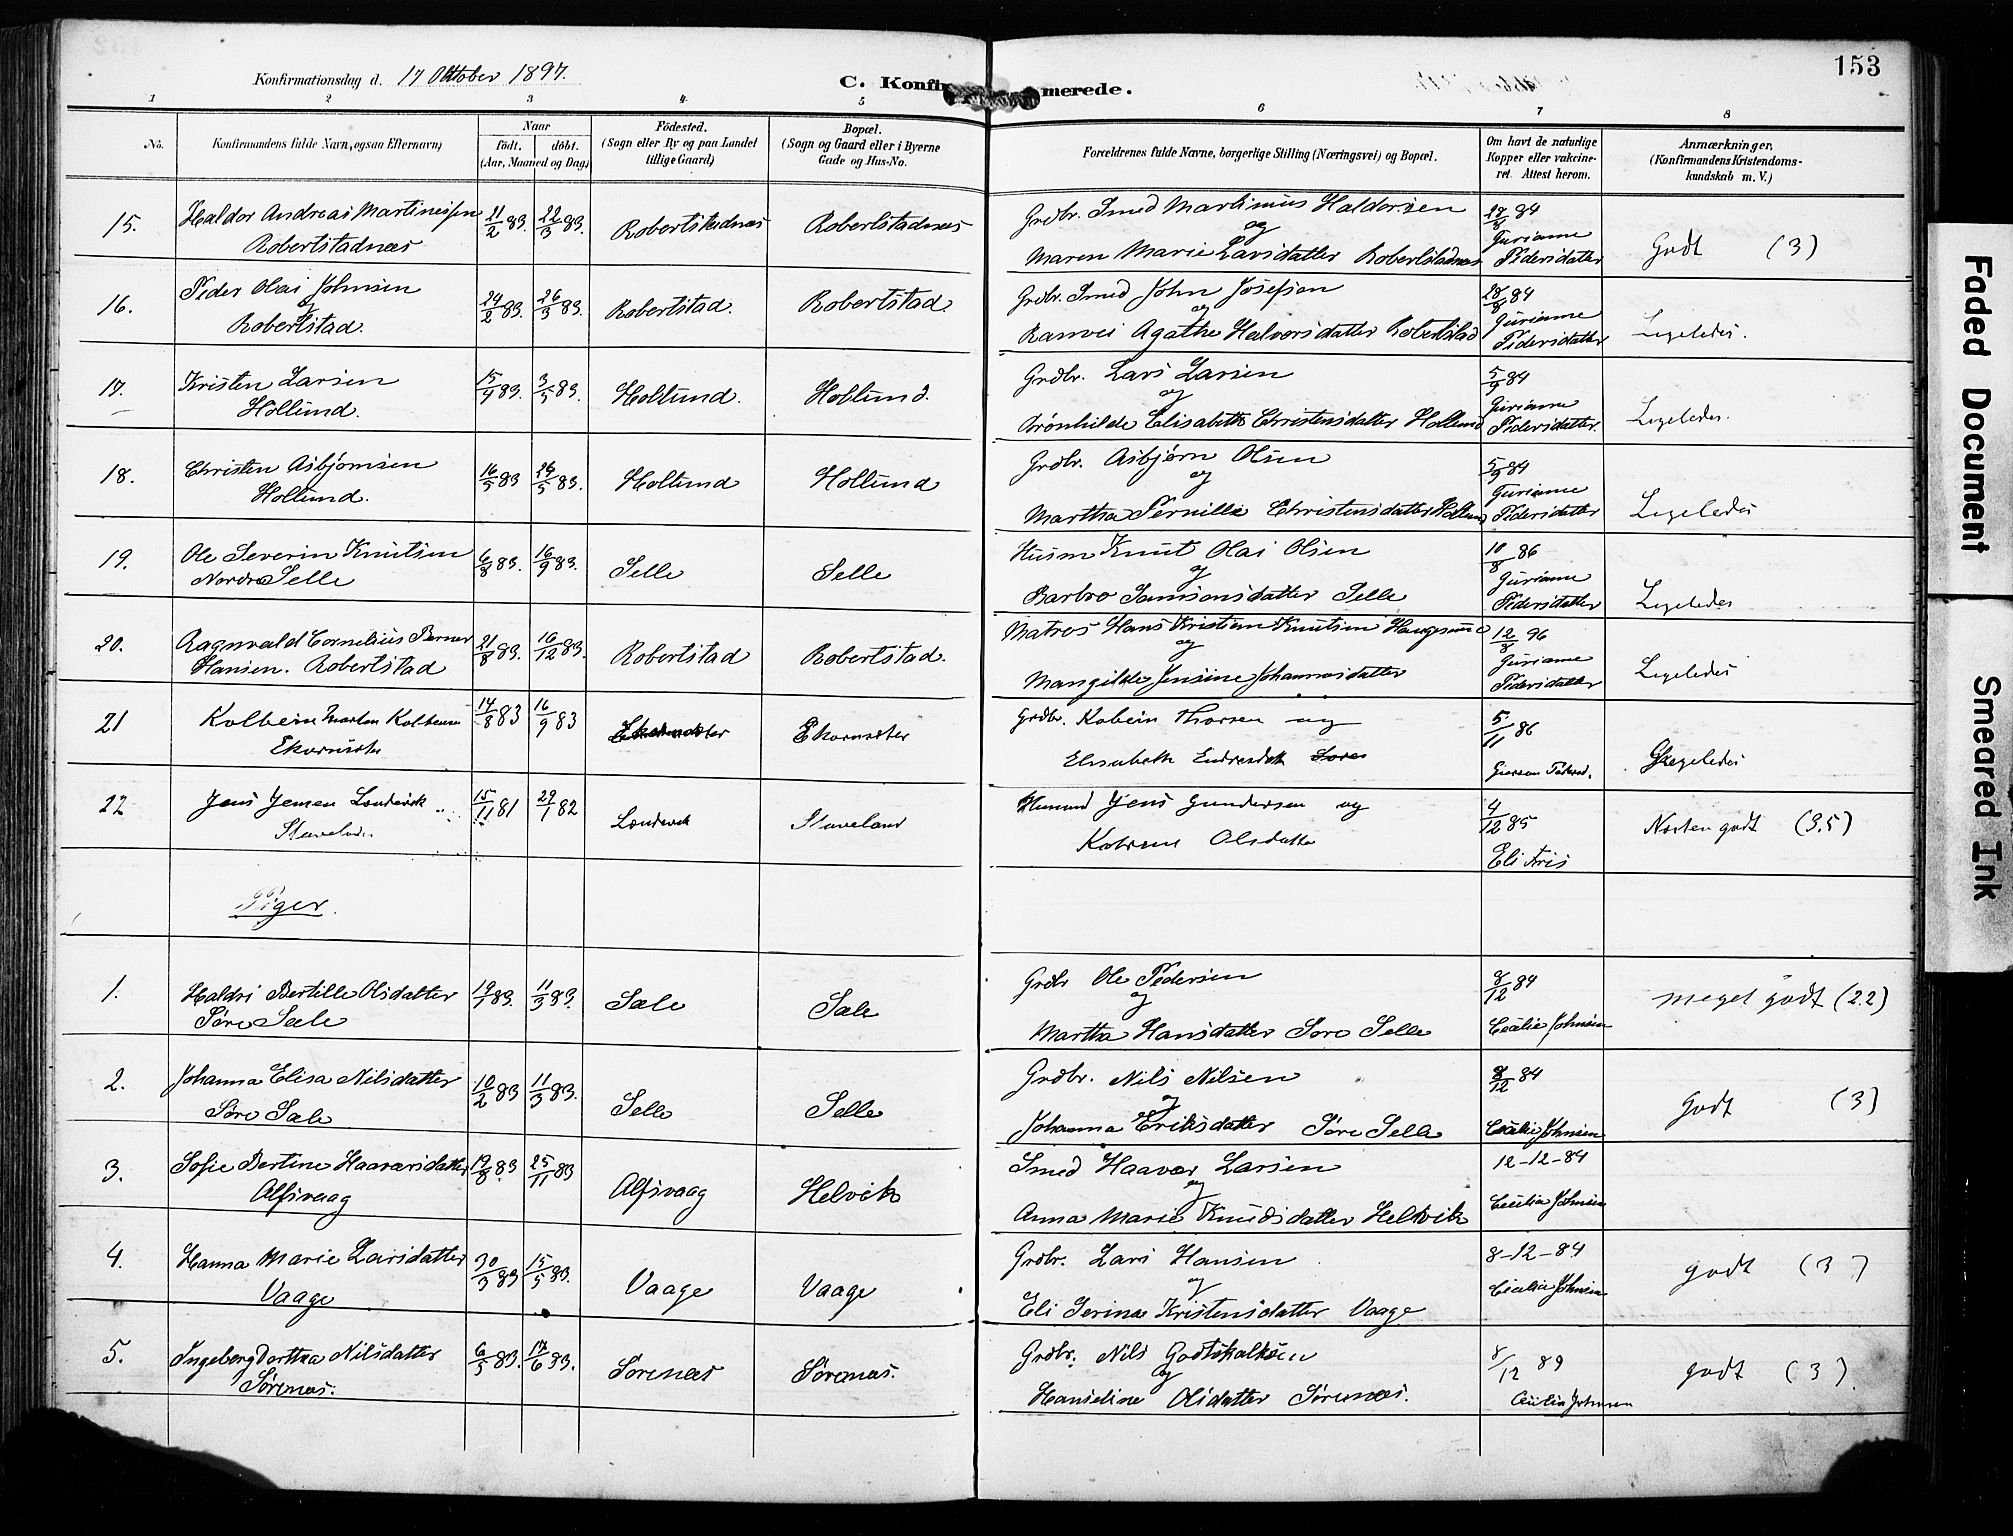 153
Konfirmationsdag d. 17 Oktober 1897.
C. Konfirmerede.
1 2 3 4 5 6 7 8
No.
Konfirmandens fulde Navn, ogsaa Efternavn)
Naar
født. døbt.
(Aar, Maaned og Dag)
Fødested.
(Sogn eller By og paa Landet
tillige Gaard)
Bopæl.
(Sogn og Gaard eller i Byerne
Gade og Hus-No.
Forældrenes fulde Navne, borgerlige Stilling (Næringsvei) og Bopæl.
Om havt de naturlige
Kopper eller vakcine-
ret. Attest herom.
Anmærkninger.
(Konfirmandens Kristendoms-
kundskab m. V.)
15. Haldor Andreas Martinessen 21/2 83. 22/3 83. Robertstadnæs Robertstadnæs Grdbr. Smed Martinius Haldorsen 28/8 84
Robertstadnæs og Gurianne
Maren Marie Larsdatter Robertstadnæs Pedersdatter Godt (3)
16. Peder Olai Johnsen 24/2 83. 26/3 83. Robertstad. Robertstad. Grdbr. Smed John Josefson 28/8 84
Robertstad. og Gurianne
Ranvei Agathe Halvorsdatter Robertstad Pedersdatter Ligeledes.
17. Kristen Larsen 15/4 83. 3/5 83. Hollund. Hollund. Grdbr. Lars Larsen 5/9 84
Hollund. og Gurianne
Brønhilde Elisabeth Christensdatter Hollund Pedersdatter. Ligeledes.
18. Christen Asbjørnsen 16/5 83 24/5 83. Hollund Hollund Grdbr. Asbjørn Olsen 5/9 84
Hollund. og Gurianne
Martha Pernille Christensdatter Hollund Pedersdatter Ligeledes
19. Ole Severin Knutsen 6/8 83. 16/9 83. Selle Selle Husm Knut Olai Olsen 10/8 86
Nordre Selle og Gurianne
Barbro Samsonsdatter Selle Pedersdatter Ligeledes
20. Ragnvald Cornelius Berner 21/8 83. 16/12 83. Robertstad Robertstad. Matros Hans Kristian Knutsen Haugesund 12/8 96
Hansen. Robertstad og Gurianne
Mangilde Jensine Johannesdatter Pedersdatter Ligeledes
21 Kolbein Martin Kolbeins 14/8 83 16/9 83 Ekornsæter Grdbr. Kobein Thorsen og 5/11 86
Ekornsæter Elisabeth Endresdatt Ligeledes
22 Jens Jensen Londevik 15/11 81 29/1 82 Londevik Staveland Husmd Jens Gundersen og 4/12 85
Staveland. Katrine Olsdatter Eli Friis Næsten godt (3.5)
Piger.
1. Haldri Bertille Olsdatter 19/1 83. 11/3 83. Sæle Sæle Grdbr Ole Pedersen 8/12 84
Søre Sæle og meget godt (2.2)
Martha Hansdatter Søre Selle Cecilie Johnsen
2. Johanna Elisa Nilsdatter 10/2 83 11/3 83. Selle Selle Grdbr. Nils Nilsen 8/12 84
Søre Sæle og Godt (3)
Johanna Eriksdatter Søre Selle Cecilie Johnsen
3. Sofie Bertine Haavarsdatter 19/8 83 25/11 83 Alfsvaag Helvik Smed Haavar Larsen 12-12-84
Alfsvaag og Cecilia Johnsen
Anna Marie Knudsdatter Helvik
4. Hanna Marie Larsdatter 30/3 83 15/5 83. Vaage Vaage Grdbr. Lars Hansen 8-12-84
Vaage og Cecilia Johnsen godt (3)
Eli Serina Kristensdatter Vaage
5. Ingeborg Dorthea Nilsdatter 6/5 83. 17/6 83. Sørenæs Sørenæs. Grdbr. Nils Godtskalksen 8/12 89
Sørenæs. og godt (3)
Hanseline Olsdatter Sørenæs. Cecilia Johnsen
Faded Document
Smeared Ink